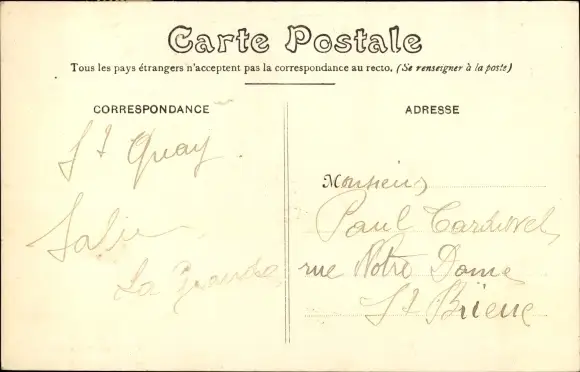 Carte Postale
Tous les pays étrangers n'acceptent pas la correspondance au recto. (Se renseigner à la poste)
CORRESPONDANCE
St Quay
La Grande
ADRESSE
Monsieur
Paul
rue Notre Dame
St Brieuc